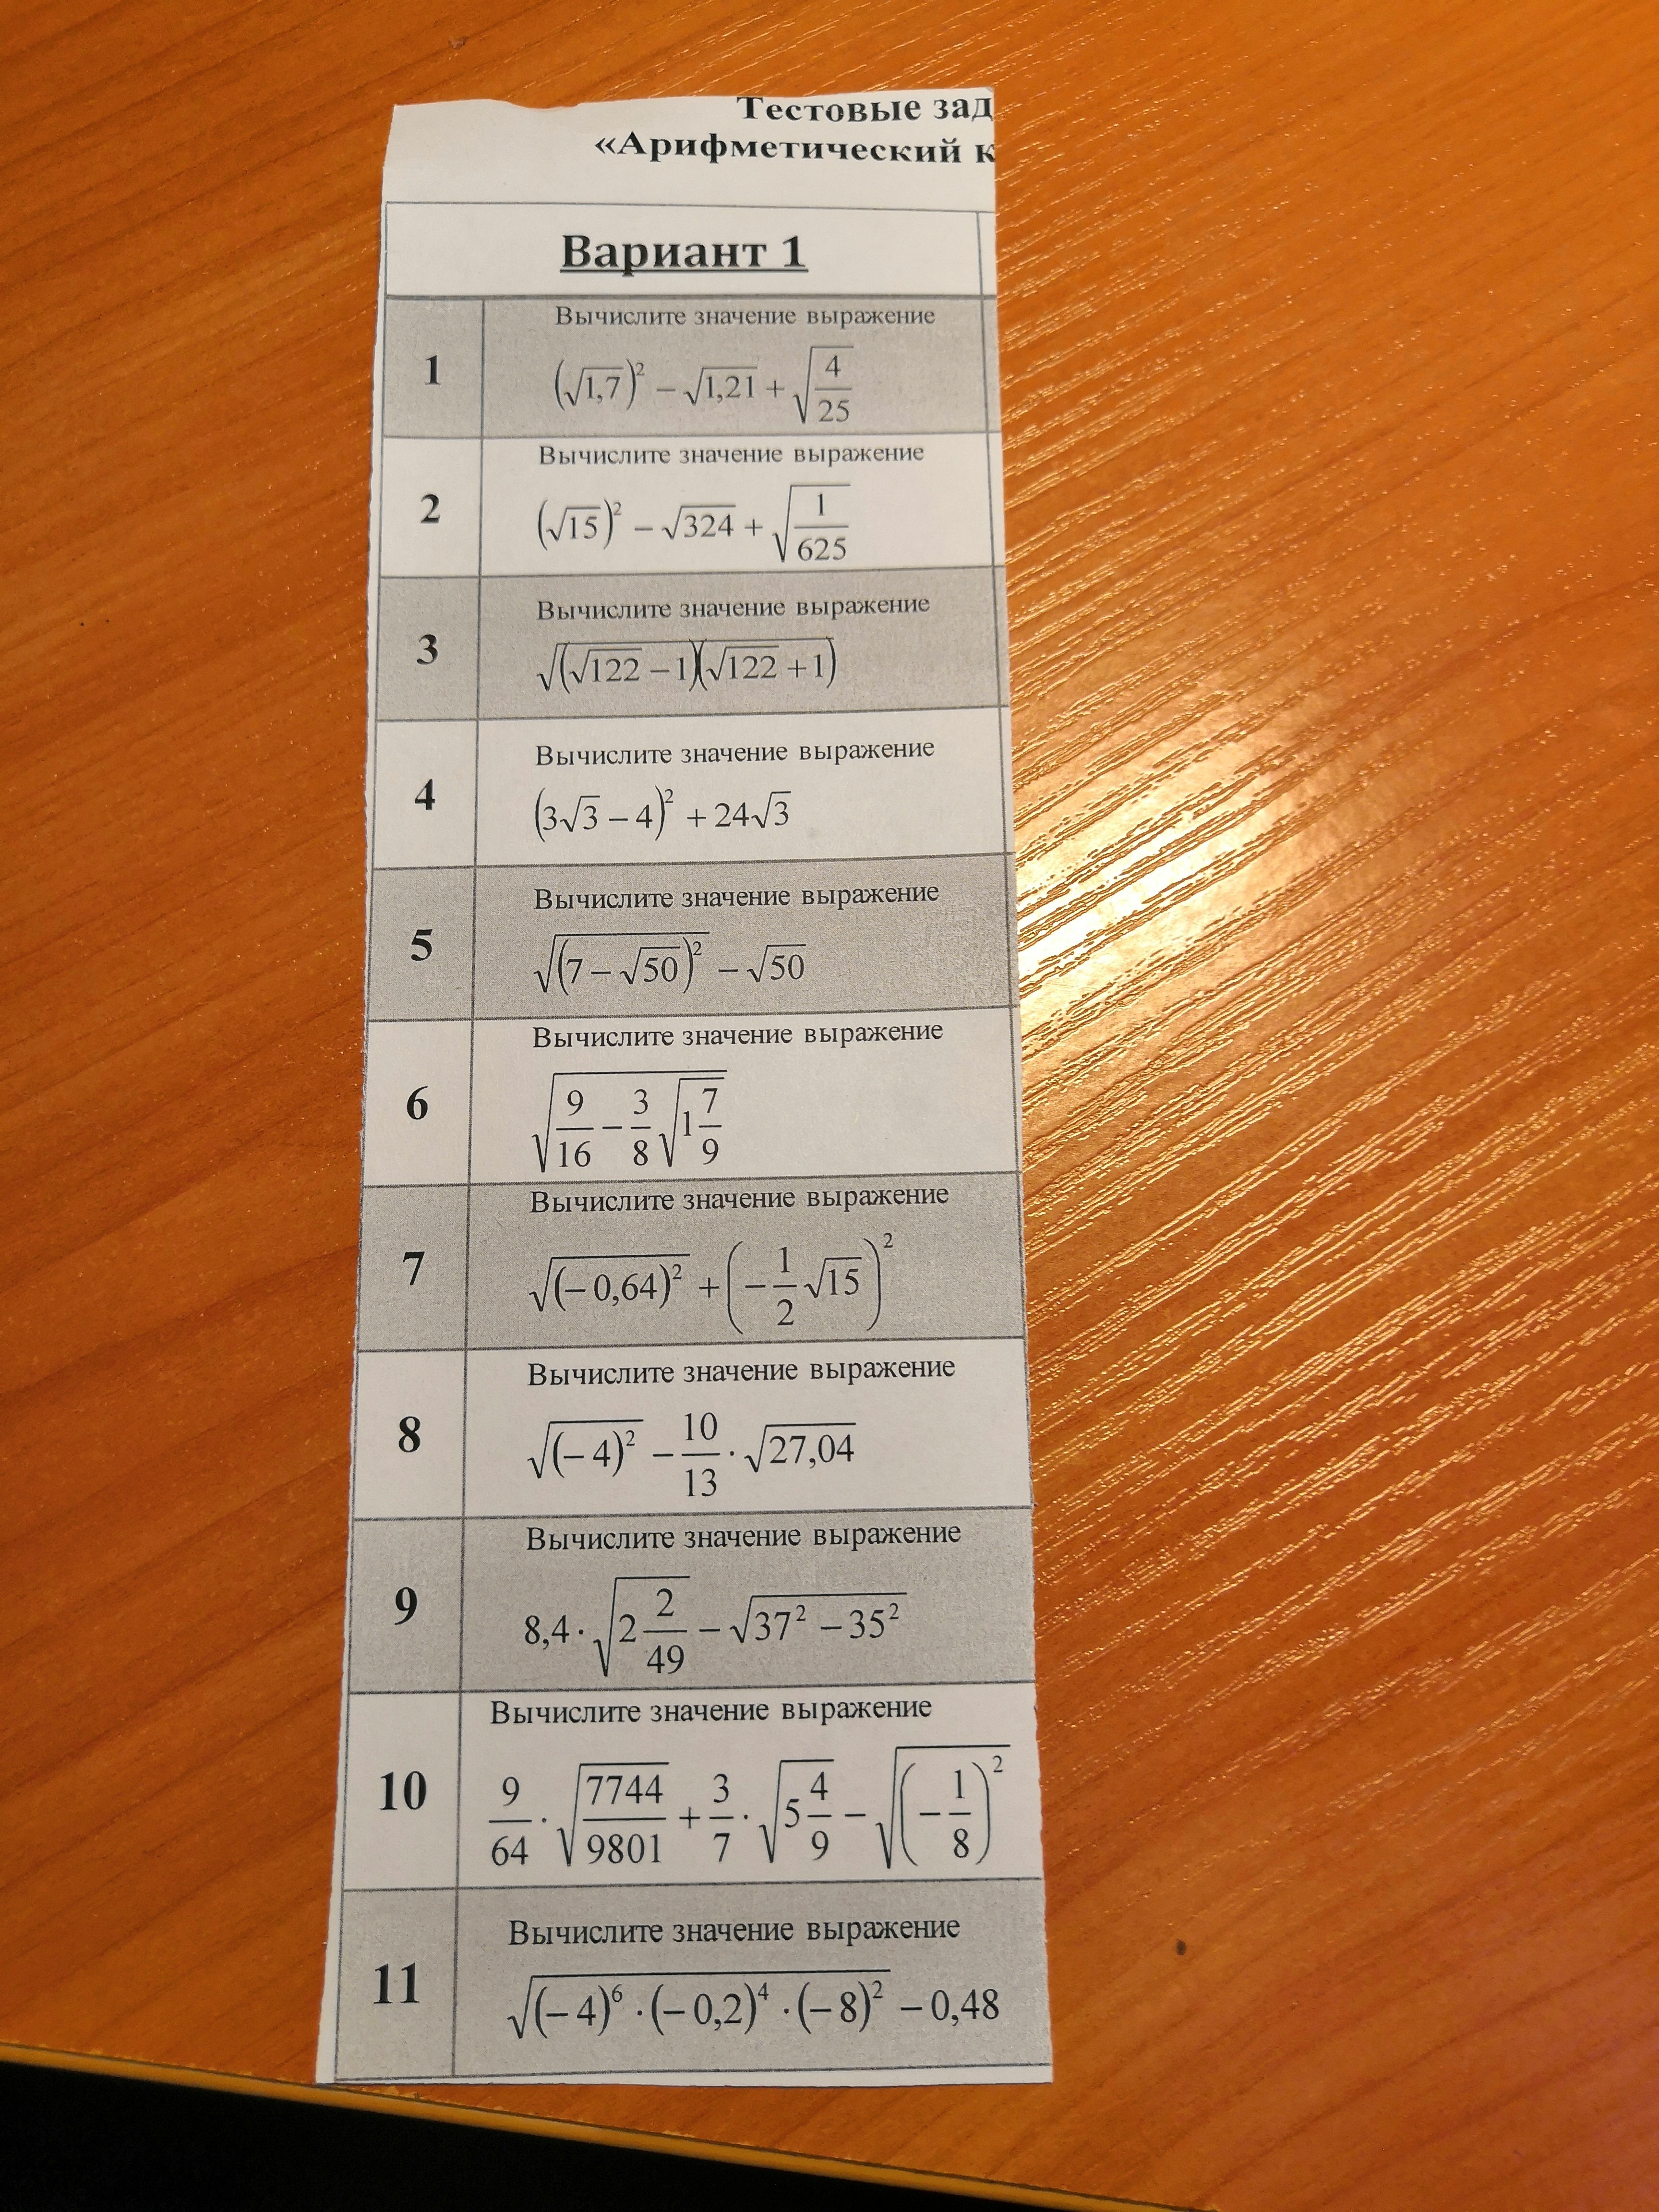 Тестовые зад
«Арифметический к
Вариант 1
1
Вычислите значение выражение
(√1,7)² − √1,21 + √(4/25)
2
Вычислите значение выражение
(√15)² − √324 + √(1/625)
3
Вычислите значение выражение
√((√122 − 1)(√122 + 1))
4
Вычислите значение выражение
(3√3 − 4)² + 24√3
5
Вычислите значение выражение
√((7 − √50)²) − √50
6
Вычислите значение выражение
√(9/16 − 3/8 √(1 7/9))
7
Вычислите значение выражение
√((−0,64)²) + (−1/2 √15)²
8
Вычислите значение выражение
√((−4)²) − 10/13 · √27,04
9
Вычислите значение выражение
8,4 · √(2 2/49) − √(37² − 35²)
10
Вычислите значение выражение
9/64 · √(7744/9801) + 3/7 · √(5 4/9) − √((−1/8)²)
11
Вычислите значение выражение
√((−4)⁶ · (−0,2)⁴ · (−8)²) − 0,48